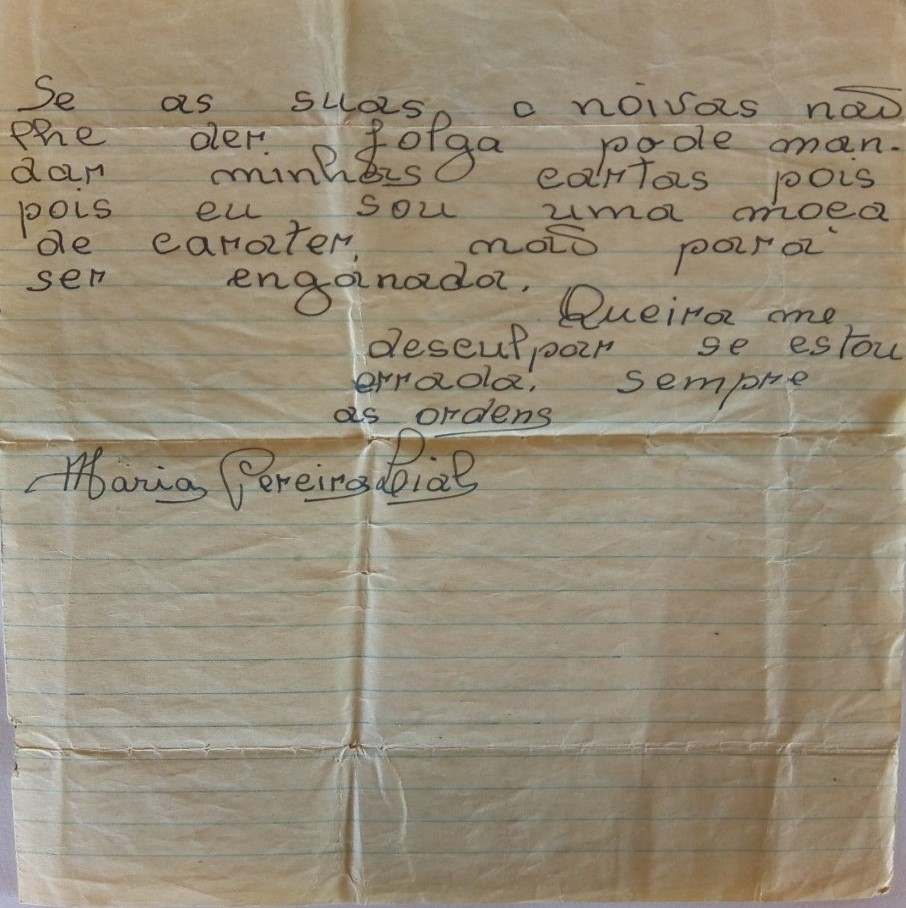 Se as suas, o noivas não
lhe der folga pode man-
dar minhas cartas pois
pois eu sou uma moça
de carater, não pará
ser enganada.
Queira me
desculpar se estou
errada. sempre
as ordens
Maria Pereira